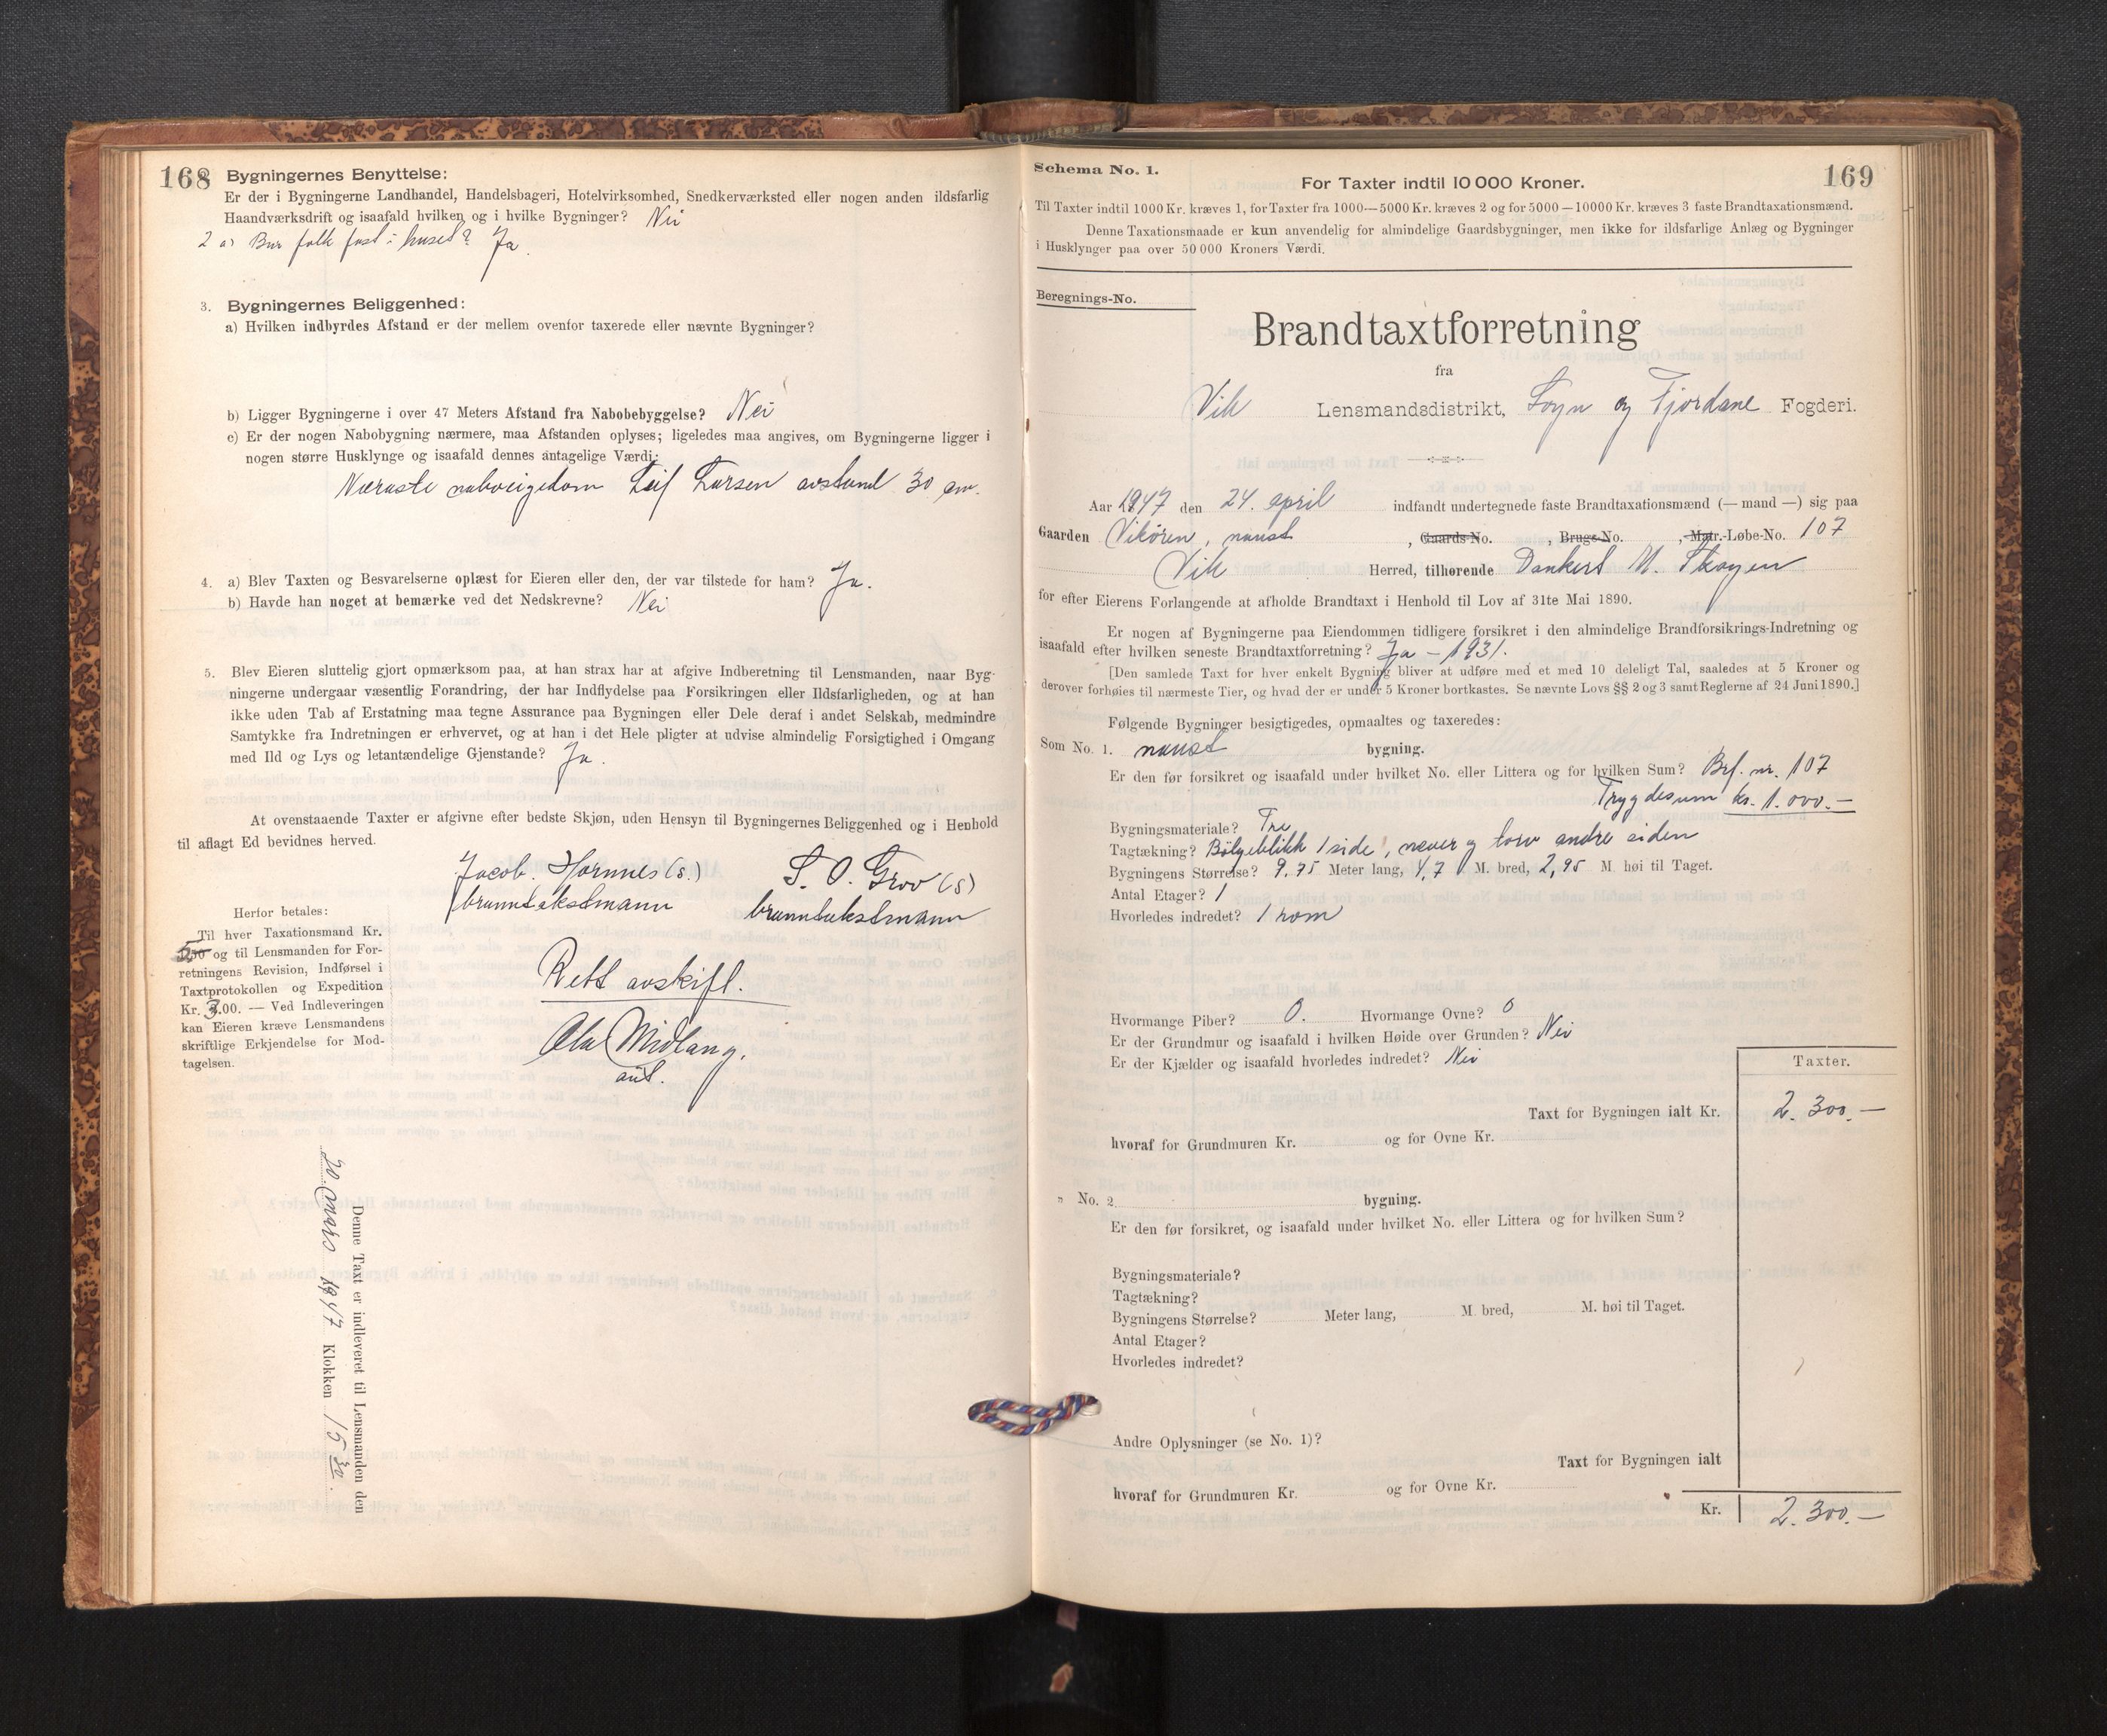 168
Bygningernes Benyttelse:
Er der i Bygningerne Landhandel, Handelsbageri, Hotelvirksomhed, Snedkerværksted eller nogen anden ildsfarlig
Haandværksdrift og isaafald hvilken og i hvilke Bygninger? Nei
2 a) Bur folk fast i huset? Ja.
3. Bygningernes Beliggenhed:
a) Hvilken indbyrdes Afstand er der mellem ovenfor taxerede eller nævnte Bygninger?
b) Ligger Bygningerne i over 47 Meters Afstand fra Nabobebyggelse? Nei
c) Er der nogen Nabobygning nærmere, maa Afstanden oplyses; ligeledes maa angives, om Bygningerne ligger i
nogen større Husklynge og isaafald dennes antagelige Værdi:
Næraste naboeigedom Leif Larsen avstand 30 cm.
4. a) Blev Taxten og Besvarelserne oplæst for Eieren eller den, der var tilstede for ham? Ja.
b) Havde han noget at bemærke ved det Nedskrevne? Nei
5. Blev Eieren sluttelig gjort opmærksom paa, at han strax har at afgive Indberetning til Lensmanden, naar Byg-
ningerne undergaar væsentlig Forandring, der har Indflydelse paa Forsikringen eller Ildsfarligheden, og at han
ikke uden Tab af Erstatning maa tegne Assurance paa Bygningen eller Dele deraf i andet Selskab, medmindre
Samtykke fra Indretningen er erhvervet, og at han i det Hele pligter at udvise almindelig Forsigtighed i Omgang
med Ild og Lys og letantændelige Gjenstande? Ja.
At ovenstaaende Taxter er afgivne efter bedste Skjøn, uden Hensyn til Bygningernes Beliggenhed og i Henhold
til aflagt Ed bevidnes herved.
Jacob. Hornnes (s.) S. O. Grov (s)
branntakstmann branntakstmann
Herfor betales:
Til hver Taxationsmand Kr.
5,00 og til Lensmanden for For-
retningens Revision, Indførsel i
Taxtprotokollen og Expedition
Kr. 3.00. — Ved Indleveringen
kan Eieren kræve Lensmandens
skriftlige Erkjendelse for Mod-
tagelsen.
Rett avskift.
Ola Midlang.
aut.
Denne Taxt er indleveret til Lensmanden den
20. mars 1947 Klokken 15 30.
Schema No. 1.
169
For Taxter indtil 10 000 Kroner.
Til Taxter indtil 1000 Kr. kræves 1, for Taxter fra 1000—5000 Kr. kræves 2 og for 5000—10000 Kr. kræves 3 faste Brandtaxationsmænd.
Denne Taxationsmaade er kun anvendelig for almindelige Gaardsbygninger, men ikke for ildsfarlige Anlæg og Bygninger
i Husklynger paa over 50 000 Kroners Værdi.
Beregnings-No.
Brandtaxtforretning
fra
Vik Lensmandsdistrikt, Sogn og Fjordane Fogderi.
Aar 1947 den 24. april indfandt undertegnede faste Brandtaxationsmænd (— mand —) sig paa
Gaarden Vikøren, naust, Gaards-No. , Brugs-No. , Matr.-Løbe-No. 107
Vik Herred, tilhørende Dankert M. Skagen
for efter Eierens Forlangende at afholde Brandtaxt i Henhold til Lov af 31te Mai 1890.
Er nogen af Bygningerne paa Eiendommen tidligere forsikret i den almindelige Brandforsikrings-Indretning og
isaafald efter hvilken seneste Brandtaxtforretning? Ja – 1931.
[Den samlede Taxt for hver enkelt Bygning bliver at udføre med et med 10 deleligt Tal, saaledes at 5 Kroner og
derover forhøies til nærmeste Tier, og hvad der er under 5 Kroner bortkastes. Se nævnte Lovs §§ 2 og 3 samt Reglerne af 24 Juni 1890.]
Følgende Bygninger besigtigedes, opmaaltes og taxeredes:
Som No. 1. naust bygning.
Er den før forsikret og isaafald under hvilket No. eller Littera og for hvilken Sum? Brf. nr. 107
Trygdesum kr. 1.000.—
Bygningsmateriale? Tre
Tagtækning? Bølgeblikk 1 side, never og torv andre siden
Bygningens Størrelse? 9,75 Meter lang, 4,7 M. bred, 2,95 M. høi til Taget.
Antal Etager? 1
Hvorledes indredet? 1 rom
Hvormange Piber? 0. Hvormange Ovne? 0
Er der Grundmur og isaafald i hvilken Høide over Grunden? Nei
Er der Kjælder og isaafald hvorledes indredet? Nei
Taxter.
Taxt for Bygningen ialt Kr. 2.300.—
hvoraf for Grundmuren Kr. og for Ovne Kr.
" No. 2 bygning.
Er den før forsikret, og isaafald under hvilket No. eller Littera og for hvilken Sum?
Bygningsmateriale?
Tagtækning?
Bygningens Størrelse? Meter lang, M. bred, M. høi til Taget.
Antal Etager?
Hvorledes indredet?
Andre Oplysninger (se No. 1)?
Taxt for Bygningen ialt
hvoraf for Grundmuren Kr. og for Ovne Kr.
Kr. 2.300.—